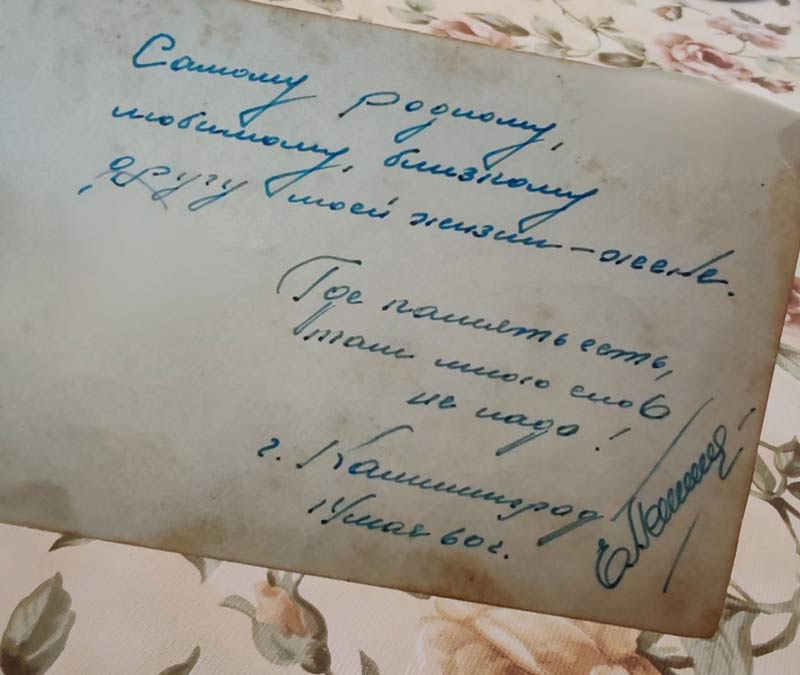 Самому родному,
любимому, близкому
другу моей жизни – жене.
Где память есть,
там много слов
не надо!
г. Калининград
14 мая 60 г.